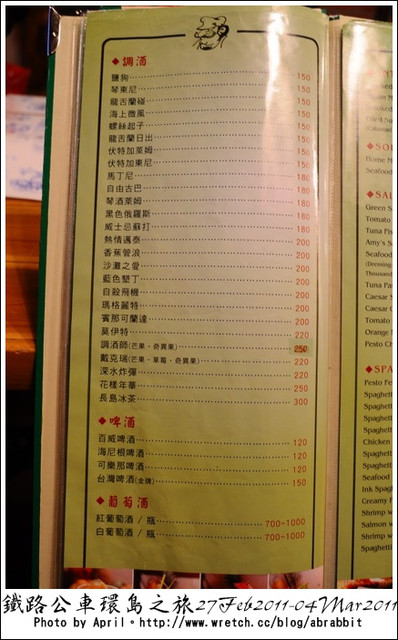 ◆調酒
鹽狗 150
琴東尼 150
龍舌蘭碰 150
海上微風 150
螺絲起子 150
龍舌蘭日出 150
伏特加萊姆 150
伏特加東尼 150
馬丁尼 180
自由古巴 180
琴酒萊姆 180
黑色俄羅斯 180
威士忌蘇打 180
熱情邁泰 200
香蕉管浪 200
沙灘之愛 200
藍色墾丁 200
自殺飛機 200
瑪格麗特 200
賓那可蘭達 200
莫伊特 220
調酒師(芒果、奇異果) 250
戴克瑞(芒果、草莓、奇異果) 220
深水炸彈 220
花樣年華 250
長島冰茶 300
◆啤酒
百威啤酒 120
海尼根啤酒 120
可樂那啤酒 120
台灣啤酒(金牌) 150
◆葡萄酒
紅葡萄酒 / 瓶 700-1000
白葡萄酒 / 瓶 700-1000
Home M
Seafood
Green S
Tomato
Tuna Fis
Amy's S
Seafood
(Dressing
Thousand
Tuna Pa
Caesar S
Caesar C
Tomato
Orange
Pesto Ch
◆SPA
Pesto Fe
Spaghett
Spaghett
Spaghett
Chicken
Spaghett
Spaghett
Seafood
Ink Spag
Creamy F
Shrimp w
Salmon w
Shrimp w
Spaghetti
鐵路公車環島之旅27Feb2011-04Mar2011
Photo by April。http://www.wretch.cc/blog/abrabbit